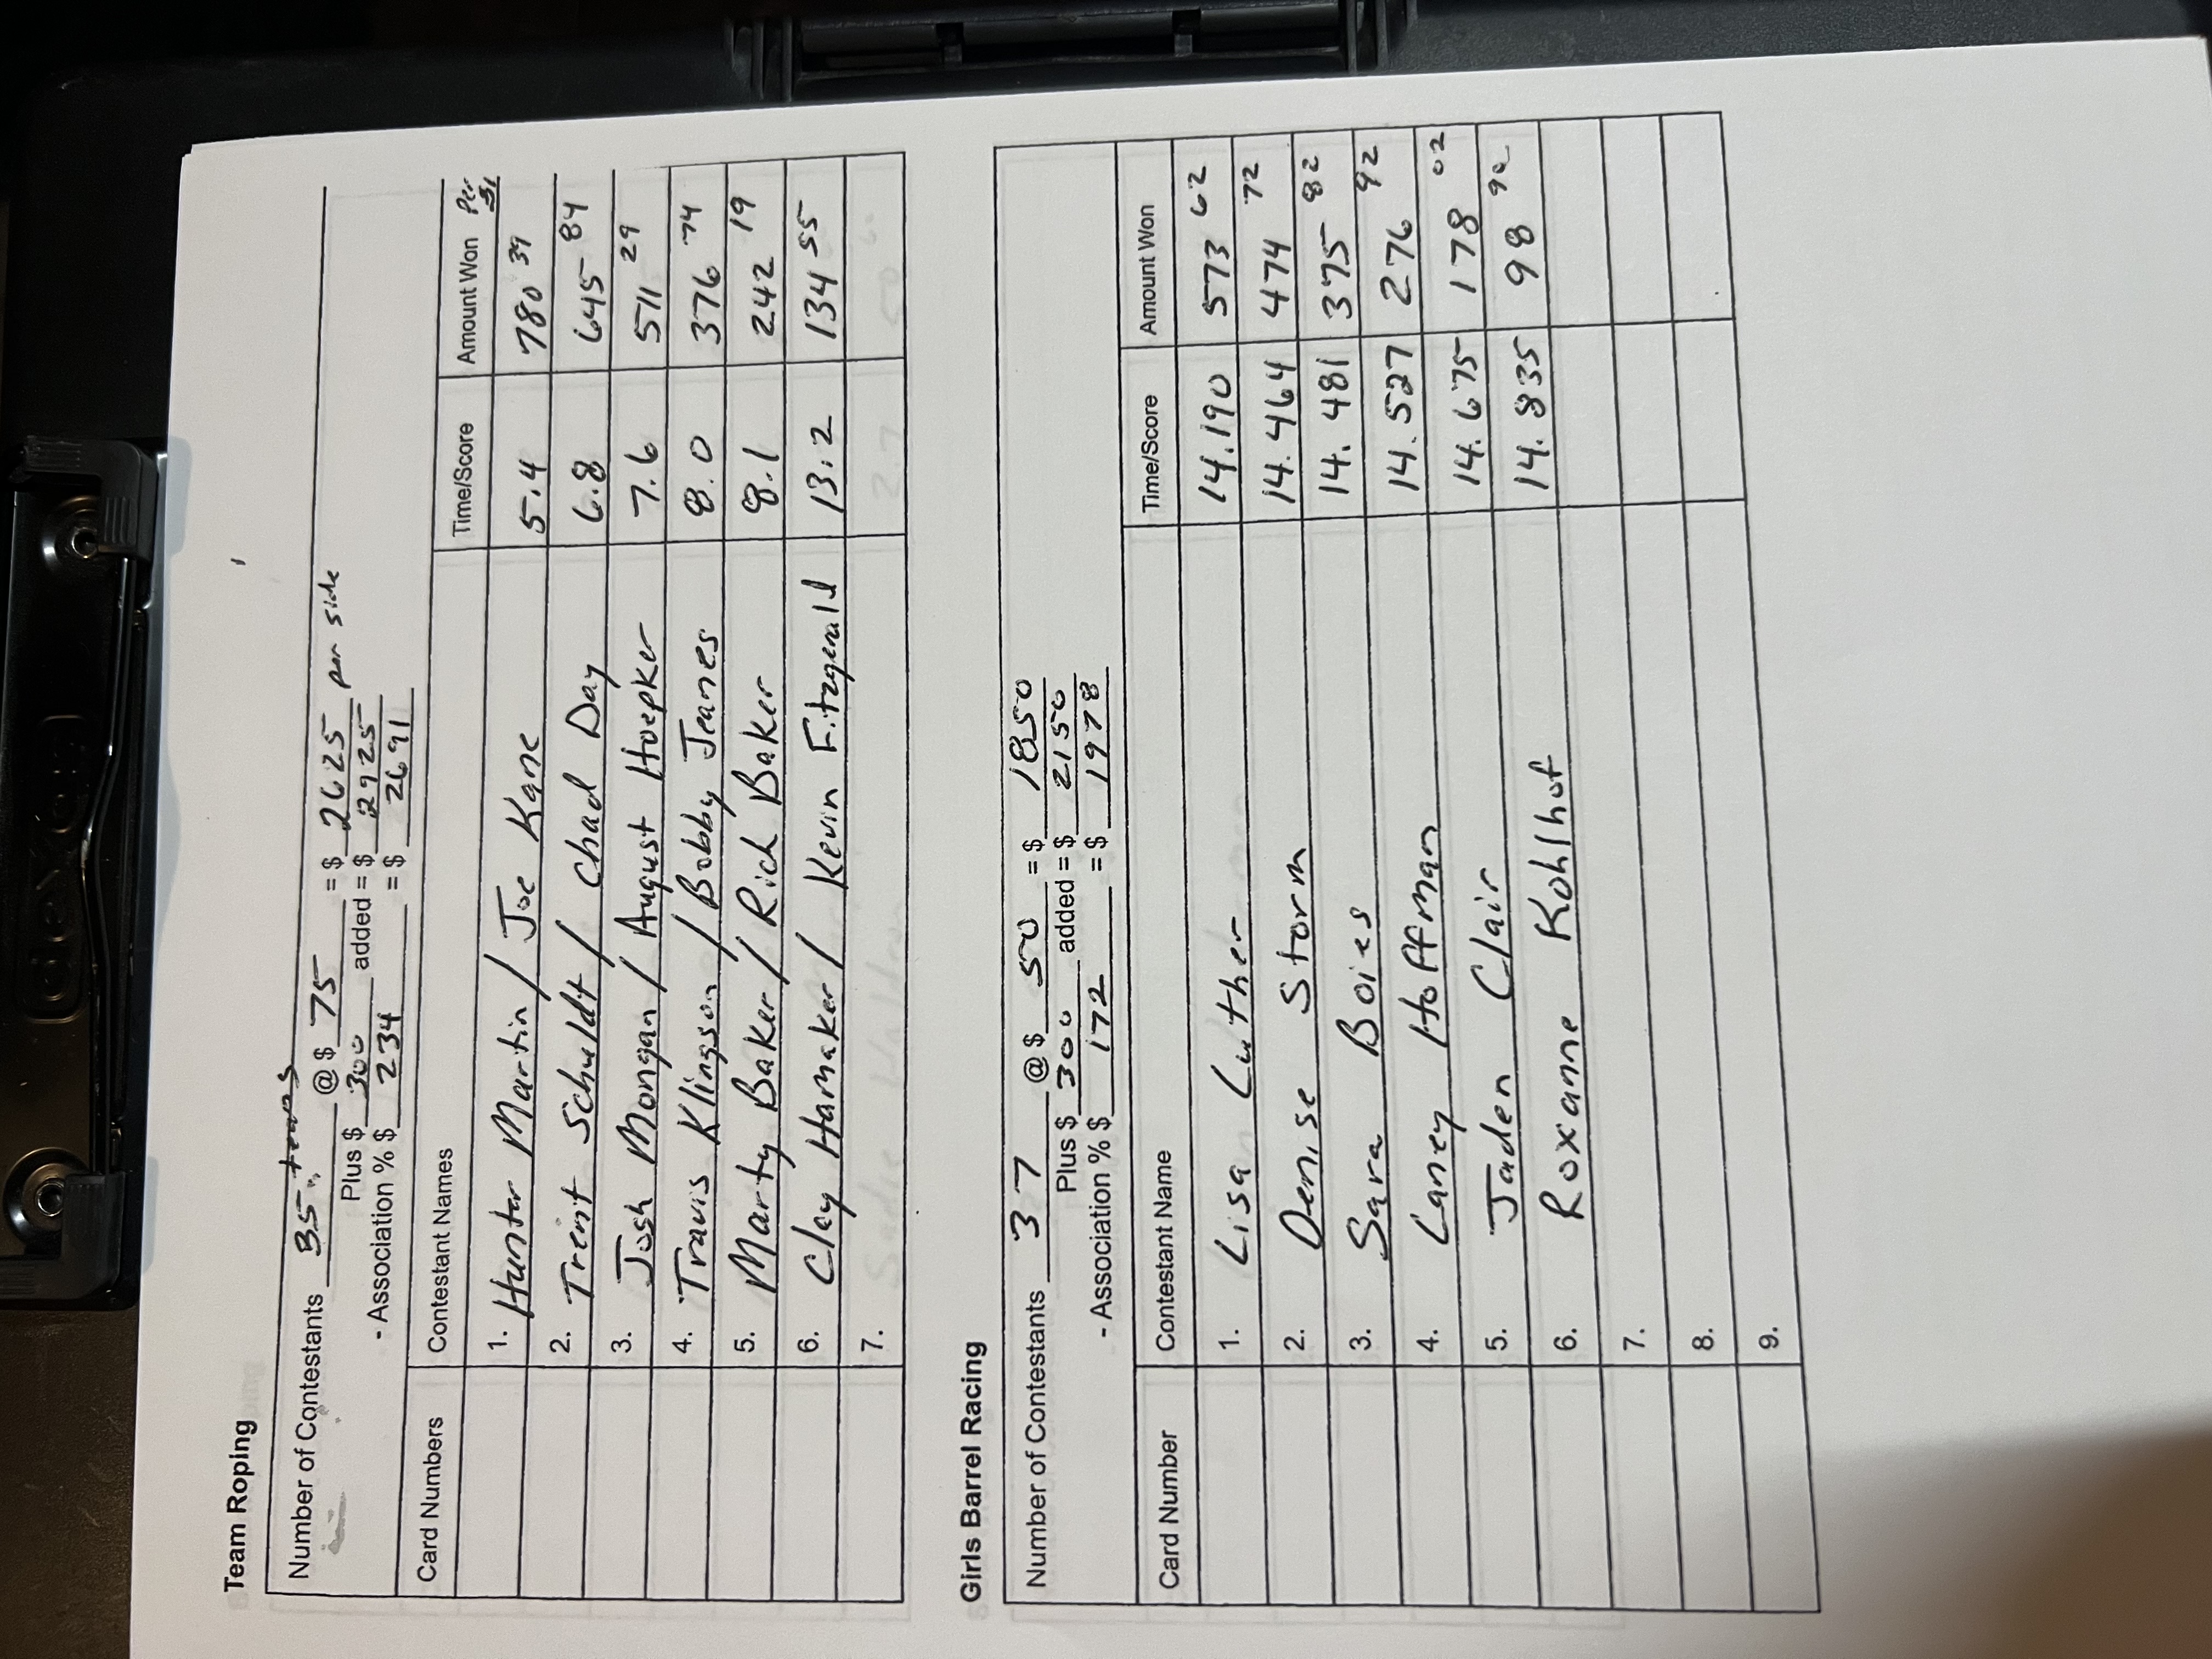 dexas
Team Roping
Number of Contestants 35 teams @ $ 75 = $ 2625 per side
Plus $ 300 added = $ 2925
- Association % $ 234 = $ 2691
Card Numbers Contestant Names Time/Score Amount Won Per
1. Hunter Martin / Joe Kane 5.4 780 39
2. Trent Schuldt / Chad Day 6.8 645 84
3. Josh Mongan / August Hoepker 7.6 511 29
4. Travis Klingson / Bobby Jeanes 8.0 376 74
5. Marty Baker / Rich Baker 8.1 242 19
6. Clay Hamaker / Kevin Fitzgerald 13.2 134 55
7.
Girls Barrel Racing
Number of Contestants 37 @ $ 50 = $ 1850
Plus $ 300 added = $ 2150
- Association % $ 172 = $ 1978
Card Number Contestant Name Time/Score Amount Won
1. Lisa Luther 14.190 573 62
2. Denise Storm 14.464 474 72
3. Sara Boies 14.481 375 82
4. Laney Hoffman 14.527 276 92
5. Jaden Clair 14.675 178 02
6. Roxanne Kohlhof 14.835 98 90
7.
8.
9.